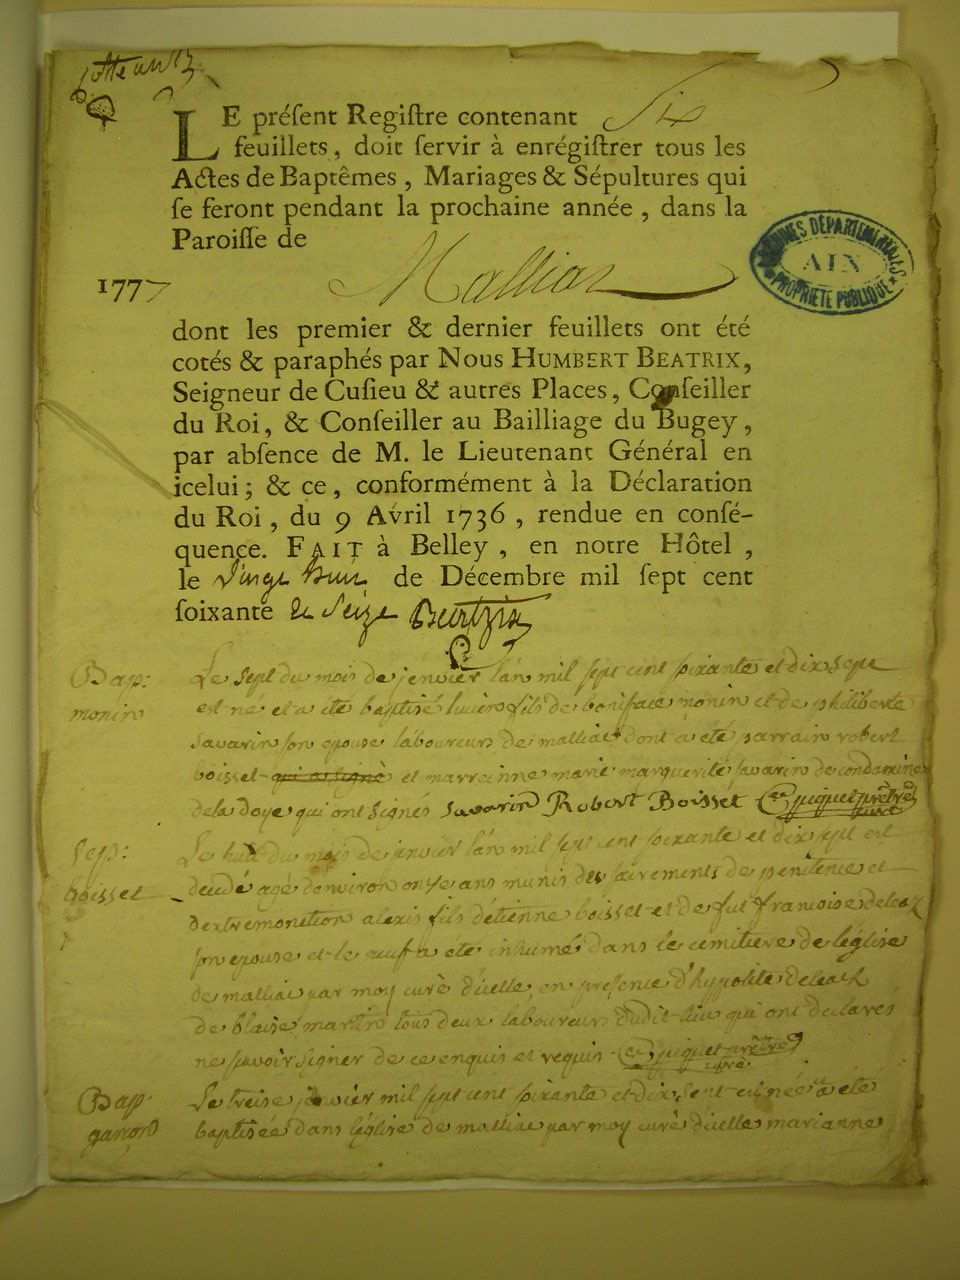 LE préſent Regiſtre contenant Six
feuillets, doit ſervir à enrégiſtrer tous les
Actes de Baptêmes, Mariages & Sépultures qui
ſe feront pendant la prochaine année, dans la
Paroiſſe de
ARCHIVES DÉPARTEMENTALES
AIN
PROPRIÉTÉ PUBLIQUE
1777 Malliat
dont les premier & dernier feuillets ont été
cotés & paraphés par Nous HUMBERT BEATRIX,
Seigneur de Cuſieu & autres Places, Conſeiller
du Roi, & Conſeiller au Bailliage du Bugey,
par abſence de M. le Lieutenant Général en
icelui; & ce, conformément à la Déclaration
du Roi, du 9 Avril 1736, rendue en conſé-
quence. FAIT à Belley, en notre Hôtel,
le vingt huit de Décembre mil ſept cent
ſoixante & Seize Beatrix
Bap: Le sept du mois de jenvier l'an mil sept cent soixante et dix sept
monin est né et a été baptisé lucien fils de boniface monin et de philiberte
savarin son epouse laboureurs de malliat dont a été parrain robert
boisset qui a signé et marrainne marie marguerite savarin de condamine
de la doye qui ont signés savarin Robert Boisset Picquet prêtre
curé
Sep: Le huit du mois de janvier l'an mil sept cent soixante et dix sept est
boisset decedé agé d'environ onze ans munis des sacrements de penitence et
d'extremonction alexis fils d'etienne boisset et de fut francoise deleaz
son epouse et le neuf a eté inhumé dans le cemitiere de l'église
de malliat par moy curé d'icelle en presence d'hyppolite deleaz
de blaise martin tous deux laboureurs dudit lieu qui ont declarés
ne savoir signer de ce enquis et requis Picquet prêtre
curé
Bap: Le treise janvier mil sept cent soixante et dix sept est née et a été
baptisée dans l'église de malliat par moy curé d'icelle marianne